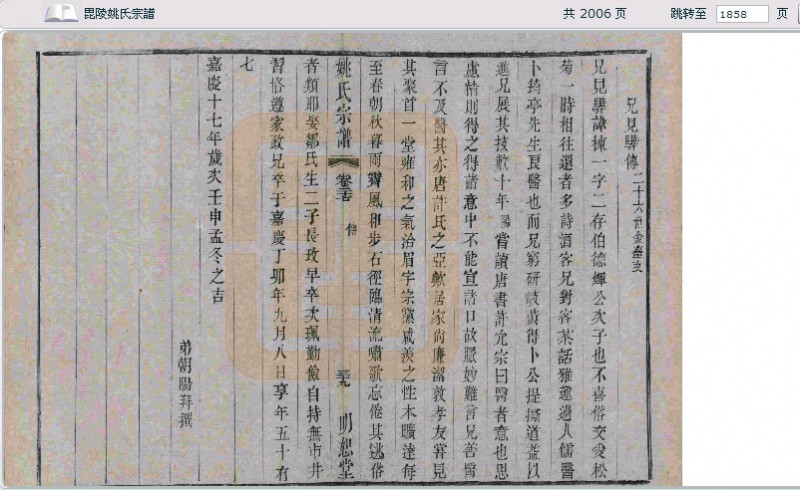 毘陵姚氏宗譜
共 2006 页
跳转至 1858 页
兄見驊傳 二十六世金臺支
兄見驊諱棟一字二存伯德輝公次子也不喜俗交愛松
菊一時相往還者多詩酒客兄對客茶話雅趣過人儒醫
卜筠亭先生良醫也而兄窮研岐黃得卜公提撕道益以
進兄展其技數十年陽嘗讀唐書許允宗曰醫者意也思
慮精則得之得諸意中不能宣諸口故脈妙難言兄善醫
言不及醫其亦唐許氏之亞歟居家尚廉潔敦孝友嘗見
其聚首一堂雍和之氣洽眉宇宗黨咸羨之性本曠達每
至春朝秋暮雨霽風和步石徑臨清流嘯歌忘倦其逃俗
姚氏宗譜 卷 傳 明恕堂
者類耶娶鄒氏生二子長玫早卒次珮勤儉自持無市井
習恪遵家政兄卒于嘉慶丁卯年九月八日享年五十有
七
嘉慶十七年歲次壬申孟冬之吉
弟朝陽拜撰